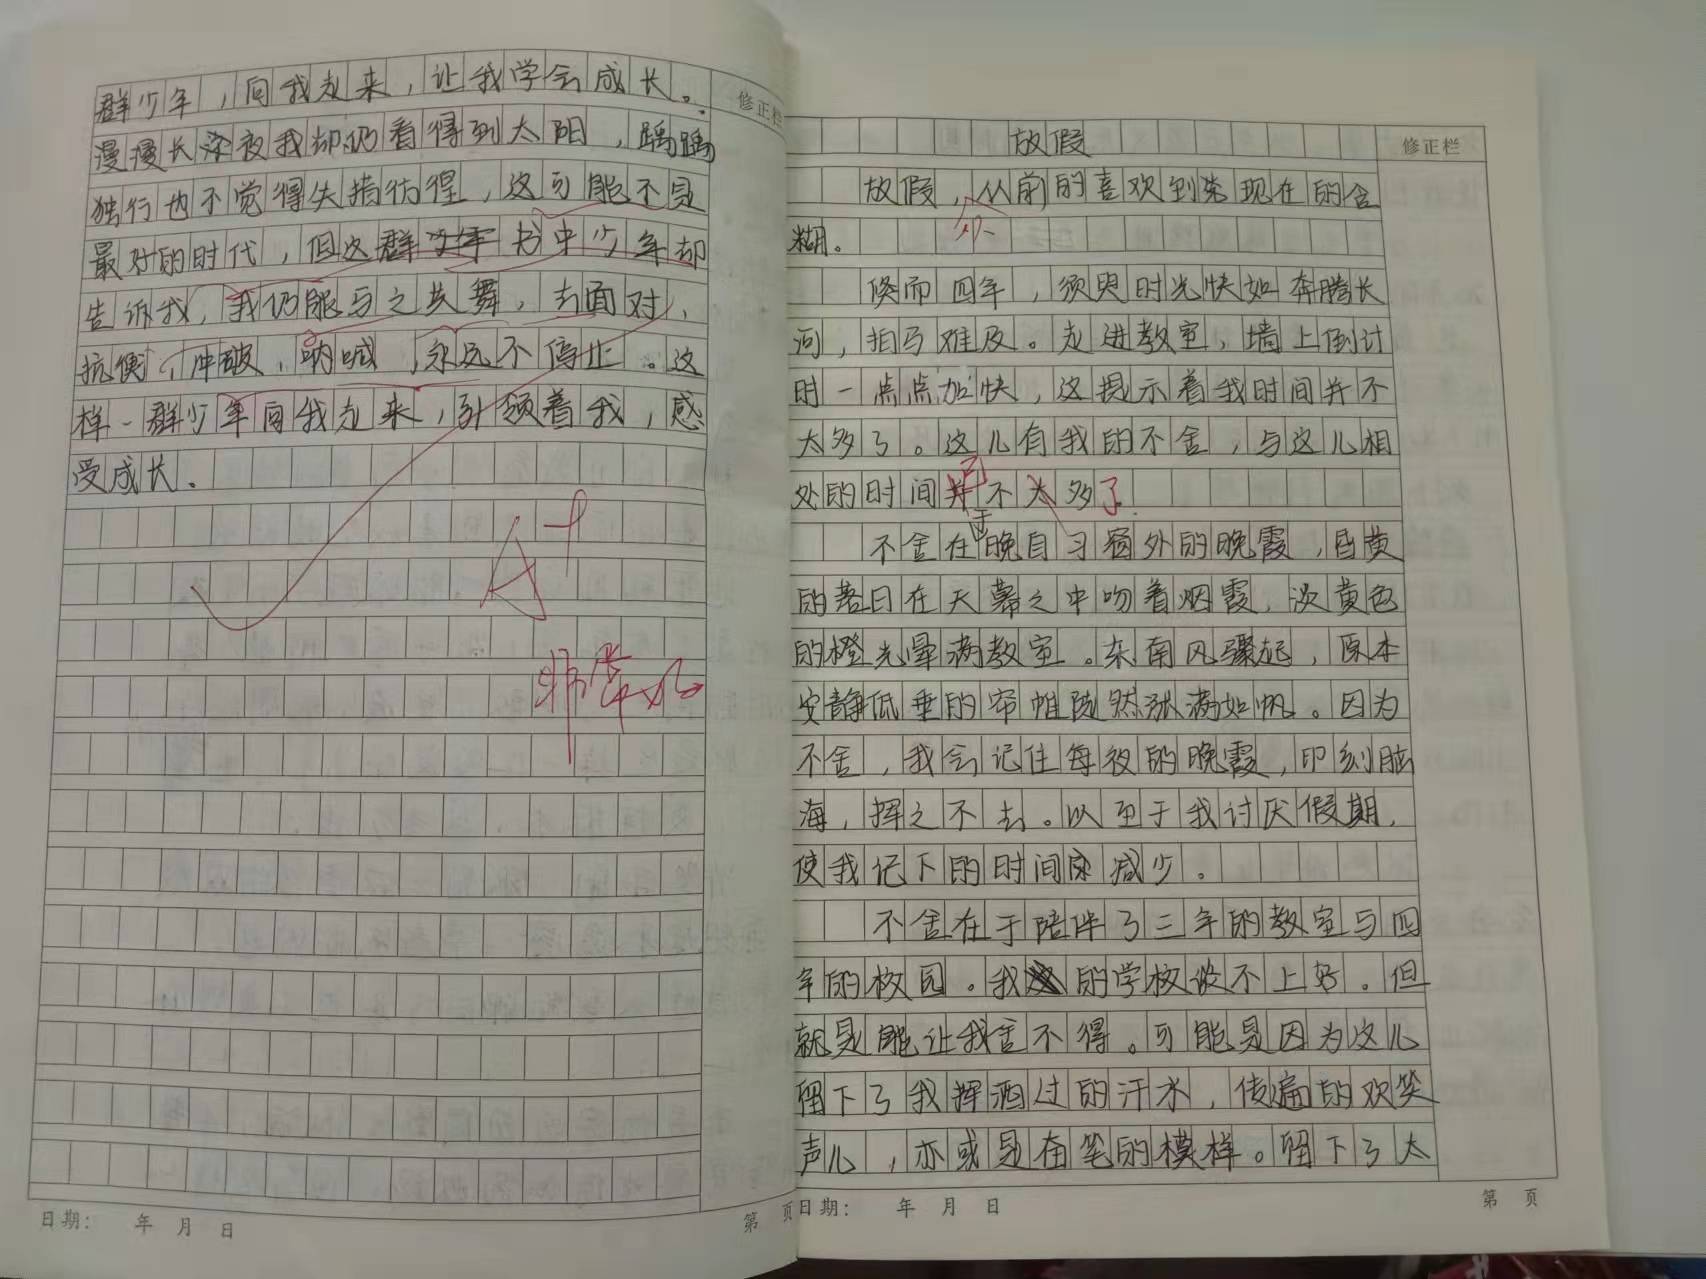 群少年，向我走来，让我学会成长。
漫漫长深夜我却仍看得到太阳，踽踽
独行也不觉得失措彷徨，这可能不是
最好的时代，但这群书中少年却
告诉我，我仍能与之共舞，去面对，
抗衡，冲破，呐喊，永远不停止。这
样一群少年向我走来，引领着我，感
受成长。
A+
非常好
修正栏
日期： 年 月 日
第 页
放假
修正栏
放假，从前的喜欢到来现在的含
糊。
倏而四年，须臾时光快如奔腾长
河，拍马难及。走进教室，墙上倒计
时一点点加快，这提示着我时间并不
太多了。这儿有我的不舍，与这儿相
处的时间并不太多了
不舍在于晚自习窗外的晚霞，昏黄
的落日在天幕之中吻着烟霞，淡黄色
的橙光晕满教室。东南风骤起，原本
安静低垂的帘帷陡然涨满如帆。因为
不舍，我会记住每夜的晚霞，印刻脑
海，挥之不去。以至于我讨厌假期，
使我记下的时间减少。
不舍在于陪伴了三年的教室与四
年的校园。我的学校谈不上好。但
就是能让我舍不得。可能是因为这儿
留下了我挥洒过的汗水，传遍的欢笑
声儿，亦或是奋笔的模样。留下了太
日期： 年 月 日
第 页